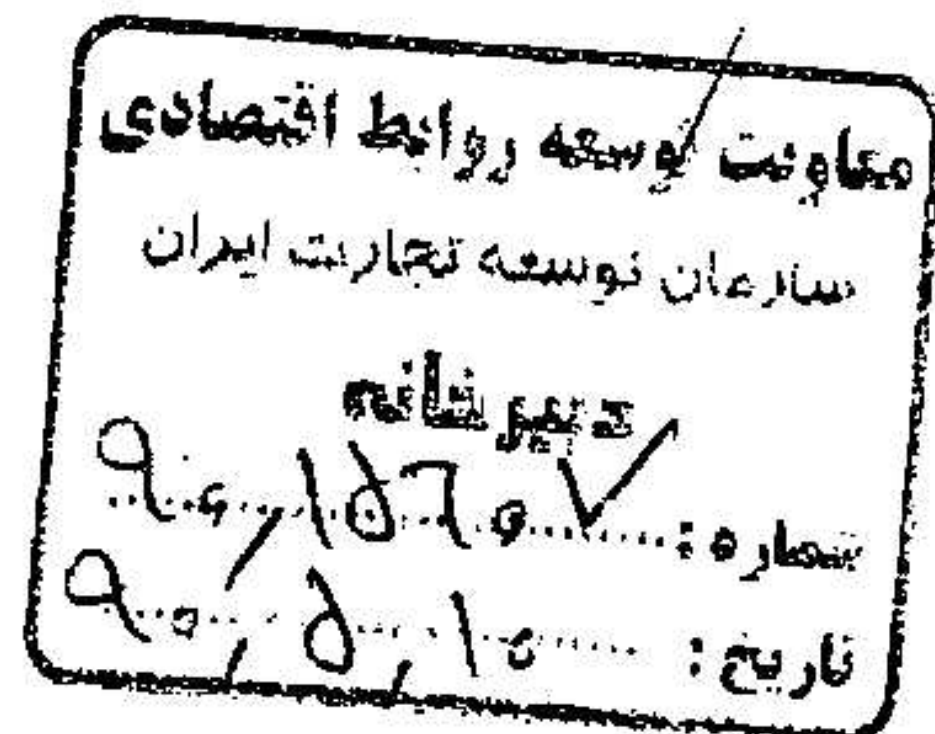 معاونت توسعه روابط اقتصادی
سازمان توسعه تجارت ایران
دبیرخانه
شماره: ۹۰/۱۵۶۰۷
تاریخ: ۹۰/۵/۱۰